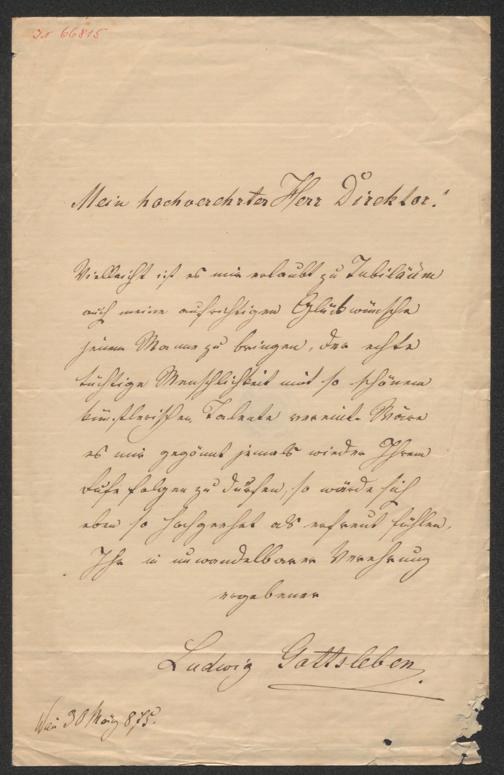 Jn 66815
Mein hochverehrter Herr Direktor!
Vielleicht ist es mir erlaubt zu Jubiläum
auch meine aufrichtigen Glückwünsche
jenem Manne zu bringen, der echte
tüchtige Menschlichkeit mit so schönem
künstlerischen Talente vereint. Wäre
es mir gegönnt jemals wieder Ihrem
Rufe folgen zu dürfen, so würde sich
eben so hochgeehrt als erfreut fühlen,
Ihr in unwandelbarer Verehrung
ergebener
Ludwig Gottsleben
Wien 30 März 875.